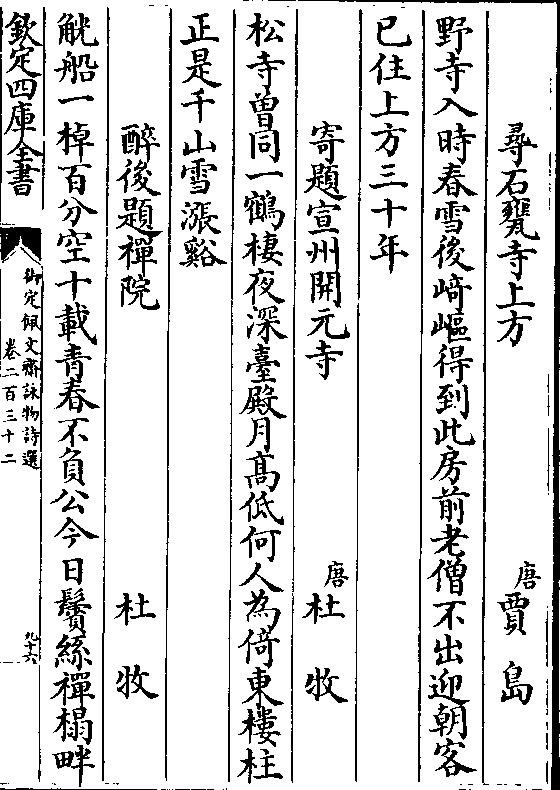 尋石甕寺上方 唐 賈島
野寺入時春雪後﨑嶇得到此房前老僧不出迎朝客
已住上方三十年
寄題宣州開元寺 唐 杜牧
松寺曽同一鶴棲夜深臺殿月髙低何人為倚東樓柱
正是千山雪漲谿
醉後題禪院 杜牧
觥船一棹百分空十載青春不負公今日鬢絲禪榻畔
欽定四庫全書
御定佩文齋詠物詩選
卷二百三十二
九十六